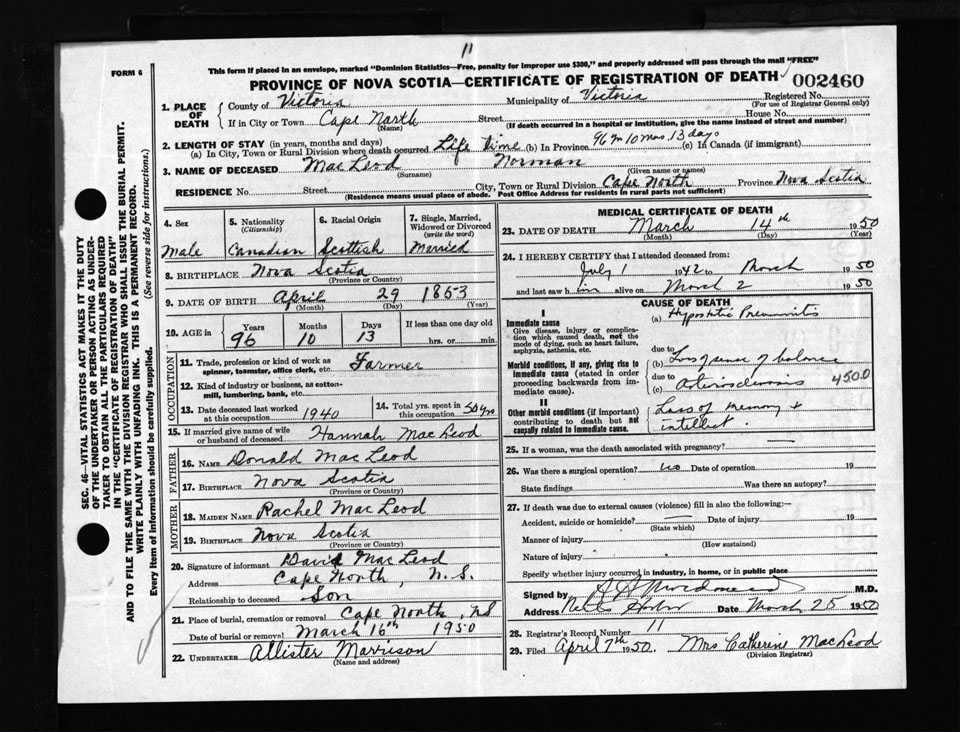 11
FORM 6
This form if placed in an envelope, marked "Dominion Statistics—Free, penalty for improper use $300," and properly addressed will pass through the mail "FREE"
PROVINCE OF NOVA SCOTIA—CERTIFICATE OF REGISTRATION OF DEATH
002460
1. PLACE OF DEATH
County of Victoria
Municipality of Victoria
Registered No.
(For use of Registrar General only)
If in City or Town Cape North
(Name)
Street
House No.
(If death occurred in a hospital or institution, give the name instead of street and number)
2. LENGTH OF STAY (in years, months and days)
(a) In City, Town or Rural Division where death occurred Life time (b) In Province 96 yrs 10 mos 13 days (c) In Canada (if immigrant)
3. NAME OF DECEASED MacLeod Norman
(Surname) (Given name or names)
RESIDENCE No. Street City, Town or Rural Division Cape North Province Nova Scotia
(Residence means usual place of abode. Post Office Address for residents in rural parts not sufficient)
4. Sex
Male
5. Nationality
(Citizenship)
Canadian
6. Racial Origin
Scottish
7. Single, Married, Widowed or Divorced
(write the word)
Married
8. BIRTHPLACE Nova Scotia
(Province or Country)
9. DATE OF BIRTH April 29 1853
(Month) (Day) (Year)
10. AGE in
Years Months Days If less than one day old
96 10 13 hrs. or min.
OCCUPATION
11. Trade, profession or kind of work as spinner, teamster, office clerk, etc. Farmer
12. Kind of industry or business, as cotton-mill, lumbering, bank, etc.
13. Date deceased last worked at this occupation 1940
14. Total yrs. spent in this occupation 50 yrs
15. If married give name of wife or husband of deceased Hannah MacLeod
FATHER
16. NAME Donald MacLeod
17. BIRTHPLACE Nova Scotia
(Province or Country)
MOTHER
18. MAIDEN NAME Rachel MacLeod
19. BIRTHPLACE Nova Scotia
(Province or Country)
20. Signature of informant David MacLeod
Address Cape North, N.S.
Relationship to deceased Son
21. Place of burial, cremation or removal Cape North, NS
Date of burial or removal March 16th 1950
22. UNDERTAKER Allister Morrison
(Name and address)
MEDICAL CERTIFICATE OF DEATH
23. DATE OF DEATH March 14th 1950
(Month) (Day) (Year)
24. I HEREBY CERTIFY that I attended deceased from:
July 1 1942 to March 1950
and last saw him alive on March 2 1950
CAUSE OF DEATH
I
Immediate cause
Give disease, injury or complication which caused death, not the mode of dying, such as heart failure, asphyxia, asthenia, etc.
(a) Hypostatic Pneumonitis
due to
Morbid conditions, if any, giving rise to immediate cause (stated in order proceeding backwards from immediate cause).
(b) Loss of sense of balance
due to
(c) Arteriosclerosis 4500
II
Other morbid conditions (if important) contributing to death but not causally related to immediate cause.
Loss of memory +
intellect.
25. If a woman, was the death associated with pregnancy?
26. Was there a surgical operation? no Date of operation 19
State findings Was there an autopsy?
27. If death was due to external causes (violence) fill in also the following:—
Accident, suicide or homicide? Date of injury 19
(State which)
Manner of injury
(How sustained)
Nature of injury
Specify whether injury occurred in industry, in home, or in public place
Signed by M.D.
Address Date March 25 1950
28. Registrar's Record Number 11
29. Filed April 7th 1950. Mrs Catherine MacLeod
(Division Registrar)
SEC. 46—VITAL STATISTICS ACT MAKES IT THE DUTY
OF THE UNDERTAKER OR PERSON ACTING AS UNDER-
TAKER TO OBTAIN ALL THE PARTICULARS REQUIRED
IN THE "CERTIFICATE OF REGISTRATION OF DEATH"
AND TO FILE THE SAME WITH THE DIVISION REGISTRAR WHO SHALL ISSUE THE BURIAL PERMIT.
WRITE PLAINLY WITH UNFADING INK. THIS IS A PERMANENT RECORD.
Every item of information should be carefully supplied. (See reverse side for instructions.)